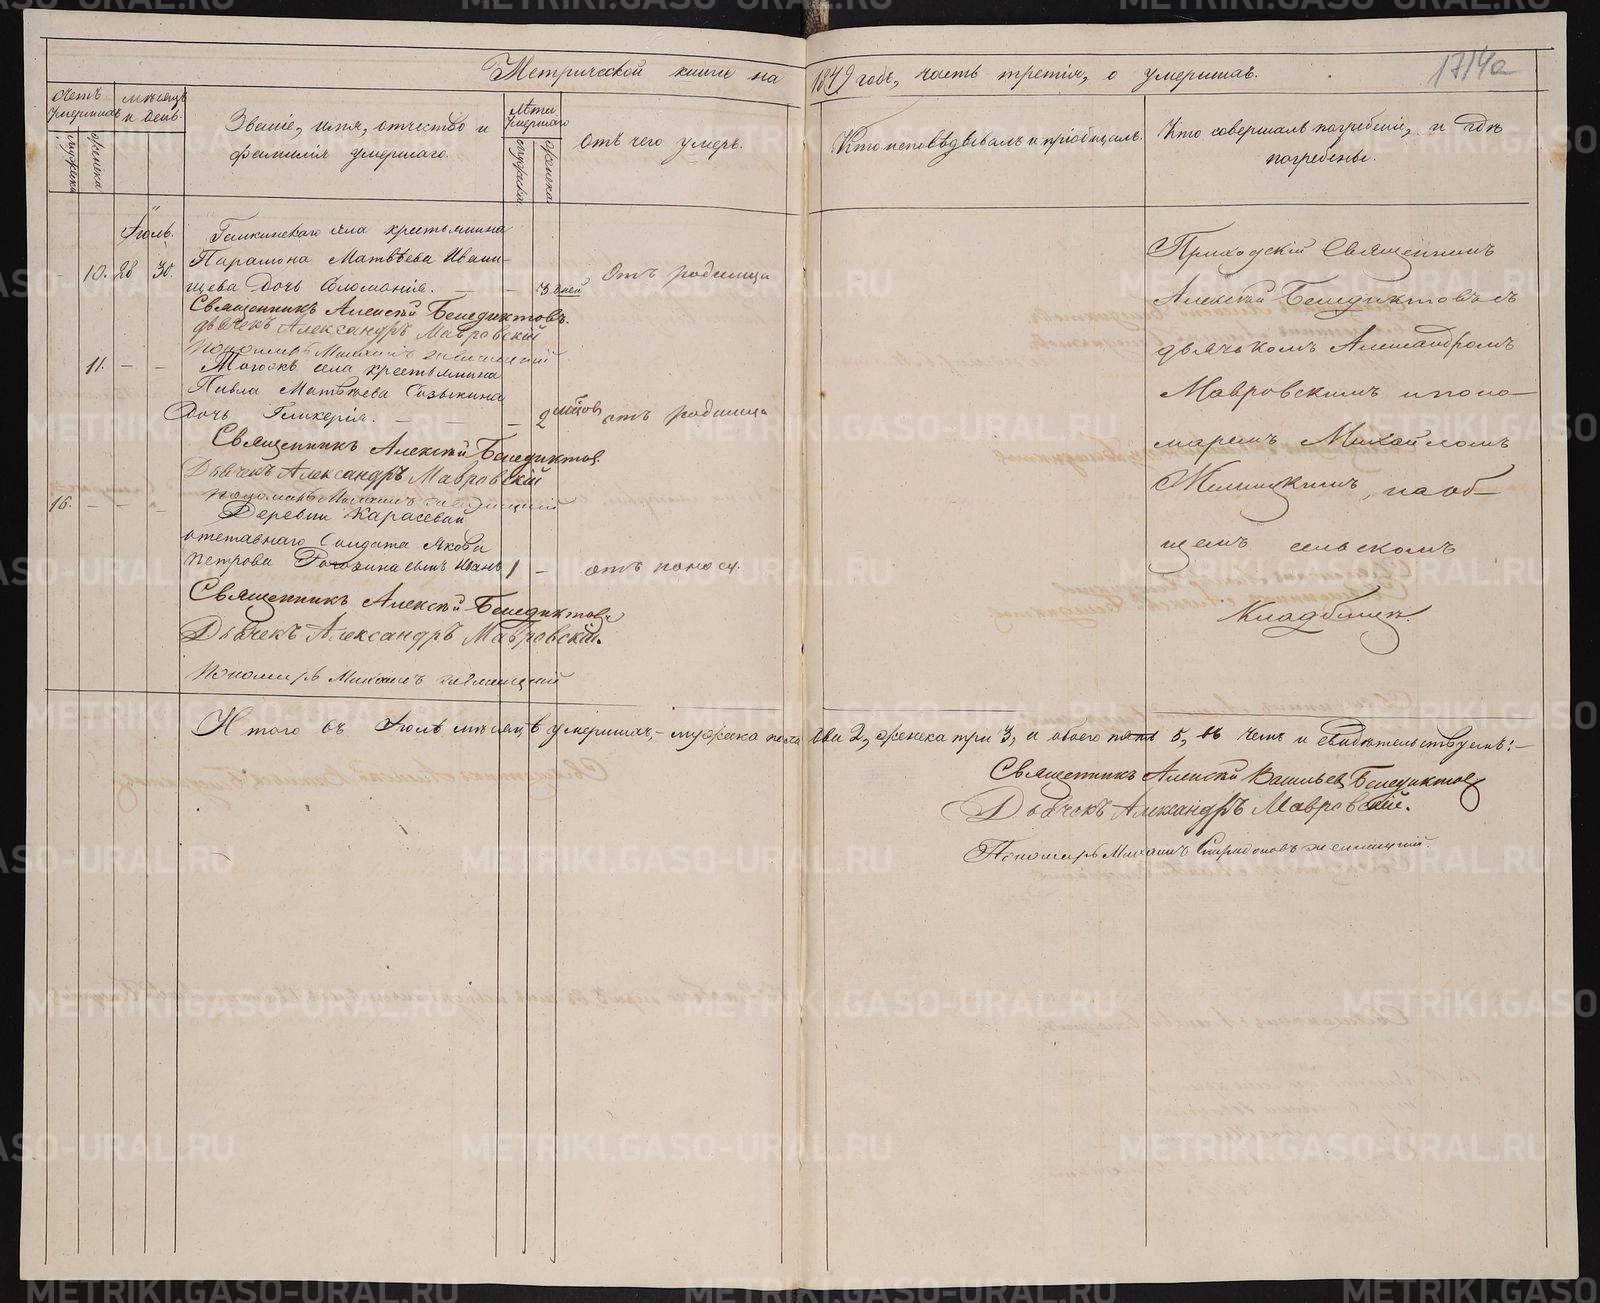 Метрической книги на 1849 годъ, часть третія, о умершихъ.
1714а
Счетъ умершихъ
мужеска
женска
мѣсяцъ и день.
Званіе, имя, отчество и
фамилія умершаго.
Лѣта умершаго
мужеска
женска
Отъ чего умеръ.
Кто исповѣдывалъ и пріобщалъ.
Кто совершалъ погребеніе, и гдѣ
погребены.
Іюль.
села крестьянина
10. 28 30. Парамона Матвѣева Ивани-
щева дочь — — 3 дней Отъ родимца
Священникъ Алексѣй Бенедиктовъ.
дьячекъ Александръ Мавровскій
пономарь Михаилъ Жилинскій
11. — — Тогожъ села крестьянина
Павла Матвѣева Созыкина
дочь Гликерія. — — — 2 мѣсяцовъ отъ родимца
Священникъ Алексѣй Бенедиктовъ.
Дьячекъ Александръ Мавровскій
пономарь Михаилъ
16. — — — Деревни Карасевой
отставнаго Солдата Якова
Петрова сынъ Иванъ 1 — отъ поноса.
Священникъ Алексѣй Бенедиктовъ
Дьячекъ Александръ Мавровскій.
Пономарь Михаилъ
Приходскій Священникъ
Алексѣй Бенедиктовъ съ
дьячькомъ Александромъ
Мавровскимъ и поно-
маремъ Михайломъ
на об-
щемъ сельскомъ
Кладбищѣ.
Итого въ Іюлѣ мѣсяцѣ умершихъ, — мужеска пола два 2, женска три 3, а обоего пять 5, въ чемъ и свидѣтельствуемъ: —
Священникъ Алексѣй Васильевъ Бенедиктовъ
Дьячекъ Александръ Мавровскій.
Пономарь Михаилъ Спиридоновъ
METRIKI.GASO-URAL.RU